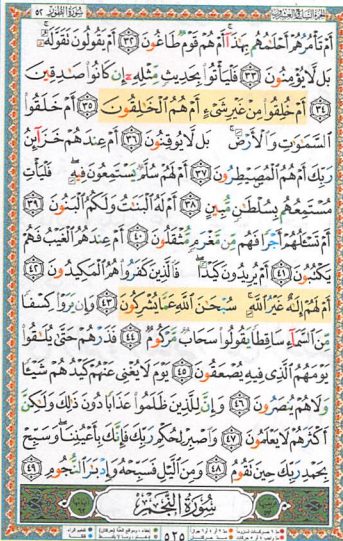 سُورَةُ الطُّورِ ٥٢
أَمْ تَأْمُرُهُمْ أَحْلَٰمُهُم بِهَٰذَآ أَمْ هُمْ قَوْمٌ طَاغُونَ ٣٢ أَمْ يَقُولُونَ تَقَوَّلَهُۥ
بَل لَّا يُؤْمِنُونَ ٣٣ فَلْيَأْتُوا۟ بِحَدِيثٍ مِّثْلِهِۦٓ إِن كَانُوا۟ صَٰدِقِينَ
٣٤ أَمْ خُلِقُوا۟ مِنْ غَيْرِ شَىْءٍ أَمْ هُمُ الْخَٰلِقُونَ ٣٥ أَمْ خَلَقُوا۟
السَّمَٰوَٰتِ وَالْأَرْضَ بَل لَّا يُوقِنُونَ ٣٦ أَمْ عِندَهُمْ خَزَآئِنُ
رَبِّكَ أَمْ هُمُ الْمُصَۣيْطِرُونَ ٣٧ أَمْ لَهُمْ سُلَّمٌ يَسْتَمِعُونَ فِيهِ فَلْيَأْتِ
مُسْتَمِعُهُم بِسُلْطَٰنٍ مُّبِينٍ ٣٨ أَمْ لَهُ الْبَنَٰتُ وَلَكُمُ الْبَنُونَ ٣٩
أَمْ تَسْـَٔلُهُمْ أَجْرًا فَهُم مِّن مَّغْرَمٍ مُّثْقَلُونَ ٤٠ أَمْ عِندَهُمُ الْغَيْبُ فَهُمْ
يَكْتُبُونَ ٤١ أَمْ يُرِيدُونَ كَيْدًا فَالَّذِينَ كَفَرُوا۟ هُمُ الْمَكِيدُونَ ٤٢
أَمْ لَهُمْ إِلَٰهٌ غَيْرُ اللَّهِ سُبْحَٰنَ اللَّهِ عَمَّا يُشْرِكُونَ ٤٣ وَإِن يَرَوْا۟ كِسْفًا
مِّنَ السَّمَآءِ سَاقِطًا يَقُولُوا۟ سَحَابٌ مَّرْكُومٌ ٤٤ فَذَرْهُمْ حَتَّىٰ يُلَٰقُوا۟
يَوْمَهُمُ الَّذِى فِيهِ يُصْعَقُونَ ٤٥ يَوْمَ لَا يُغْنِى عَنْهُمْ كَيْدُهُمْ شَيْـًٔا
وَلَا هُمْ يُنصَرُونَ ٤٦ وَإِنَّ لِلَّذِينَ ظَلَمُوا۟ عَذَابًا دُونَ ذَٰلِكَ وَلَٰكِنَّ
أَكْثَرَهُمْ لَا يَعْلَمُونَ ٤٧ وَاصْبِرْ لِحُكْمِ رَبِّكَ فَإِنَّكَ بِأَعْيُنِنَا وَسَبِّحْ
بِحَمْدِ رَبِّكَ حِينَ تَقُومُ ٤٨ وَمِنَ الَّيْلِ فَسَبِّحْهُ وَإِدْبَٰرَ النُّجُومِ ٤٩
سُورَةُ النَّجْمِ
٥٢٥